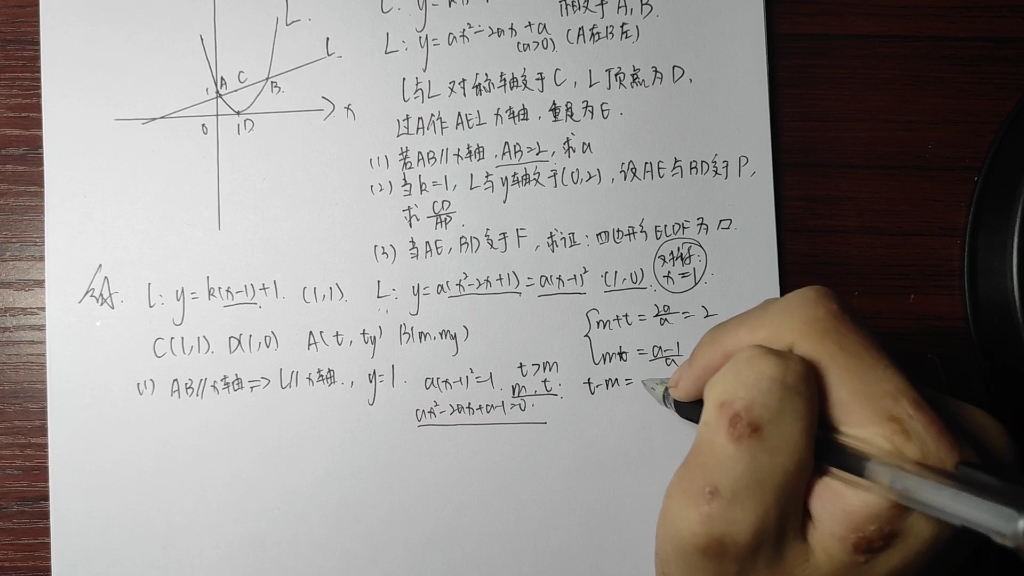 L.
l
A C B.
1
0 1D x
相交于A,B.
L: y=ax²-2ax+a (a>0). (A在B左)
l与L对称轴交于C, L顶点为D,
过A作AE⊥x轴, 垂足为E.
(1) 若AB//x轴, AB=2, 求a
(2) 当k=1, L与y轴交于(0,2), 设AE与BD交于P,
求 CD/AP.
(3) 当AE, BD交于F, 求证: 四边形ECDF为□.
l: y=k(x-1)+1. (1,1). L: y=a(x²-2x+1)=a(x-1)² (1,0).
对称: x=1
C(1,1). D(1,0) A(t, ty) B(m, my)
(1) AB//x轴 => l//x轴, y=1. a(x-1)²=1.
ax²-2ax+a-1=0.
t>m
m, t:
m+t = 2a/a = 2
mt = a-1/a
t-m =